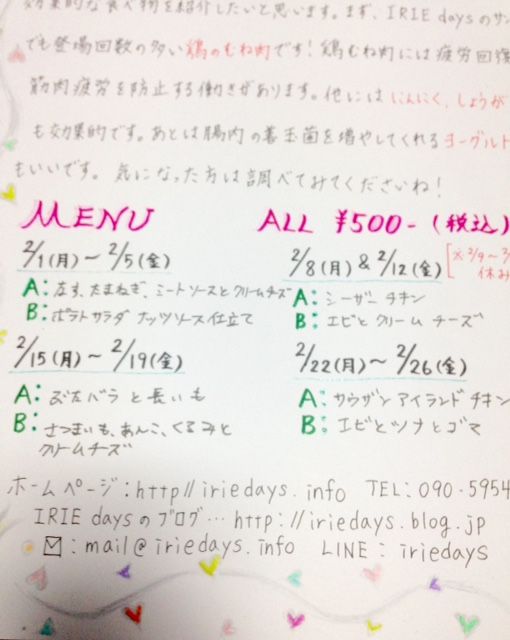 効果的な食べ物を紹介したいと思います。まず、IRIE daysのサン
でも登場回数の多い鶏のむね肉です！鶏むね肉には疲労回復
筋肉疲労を防止する働きがあります。他には にんにく、しょうが
も効果的です。あとは腸内の善玉菌を増やしてくれるヨーグルト
もいいです。気になった方は調べてみてくださいね！
MENU ALL ¥500-(税込)
2/1(月)～2/5(金)
A:なす、たまねぎ、ミートソースとクリームチーズ
B:ポテトサラダ ナッツソース仕立て
2/8(月)&2/12(金) [※2/9～
休み
A:シーザーチキン
B:エビとクリームチーズ
2/15(月)～2/19(金)
A:ぶたバラと長いも
B:さつまいも、あんこ、くるみと
クリームチーズ
2/22(月)～2/26(金)
A:サウザンアイランドチキン
B:エビとツナとゴマ
ホームページ:http//iriedays.info TEL:090-5954
IRIE daysのブログ…http://iriedays.blog.jp
✉:mail@iriedays.info LINE:iriedays